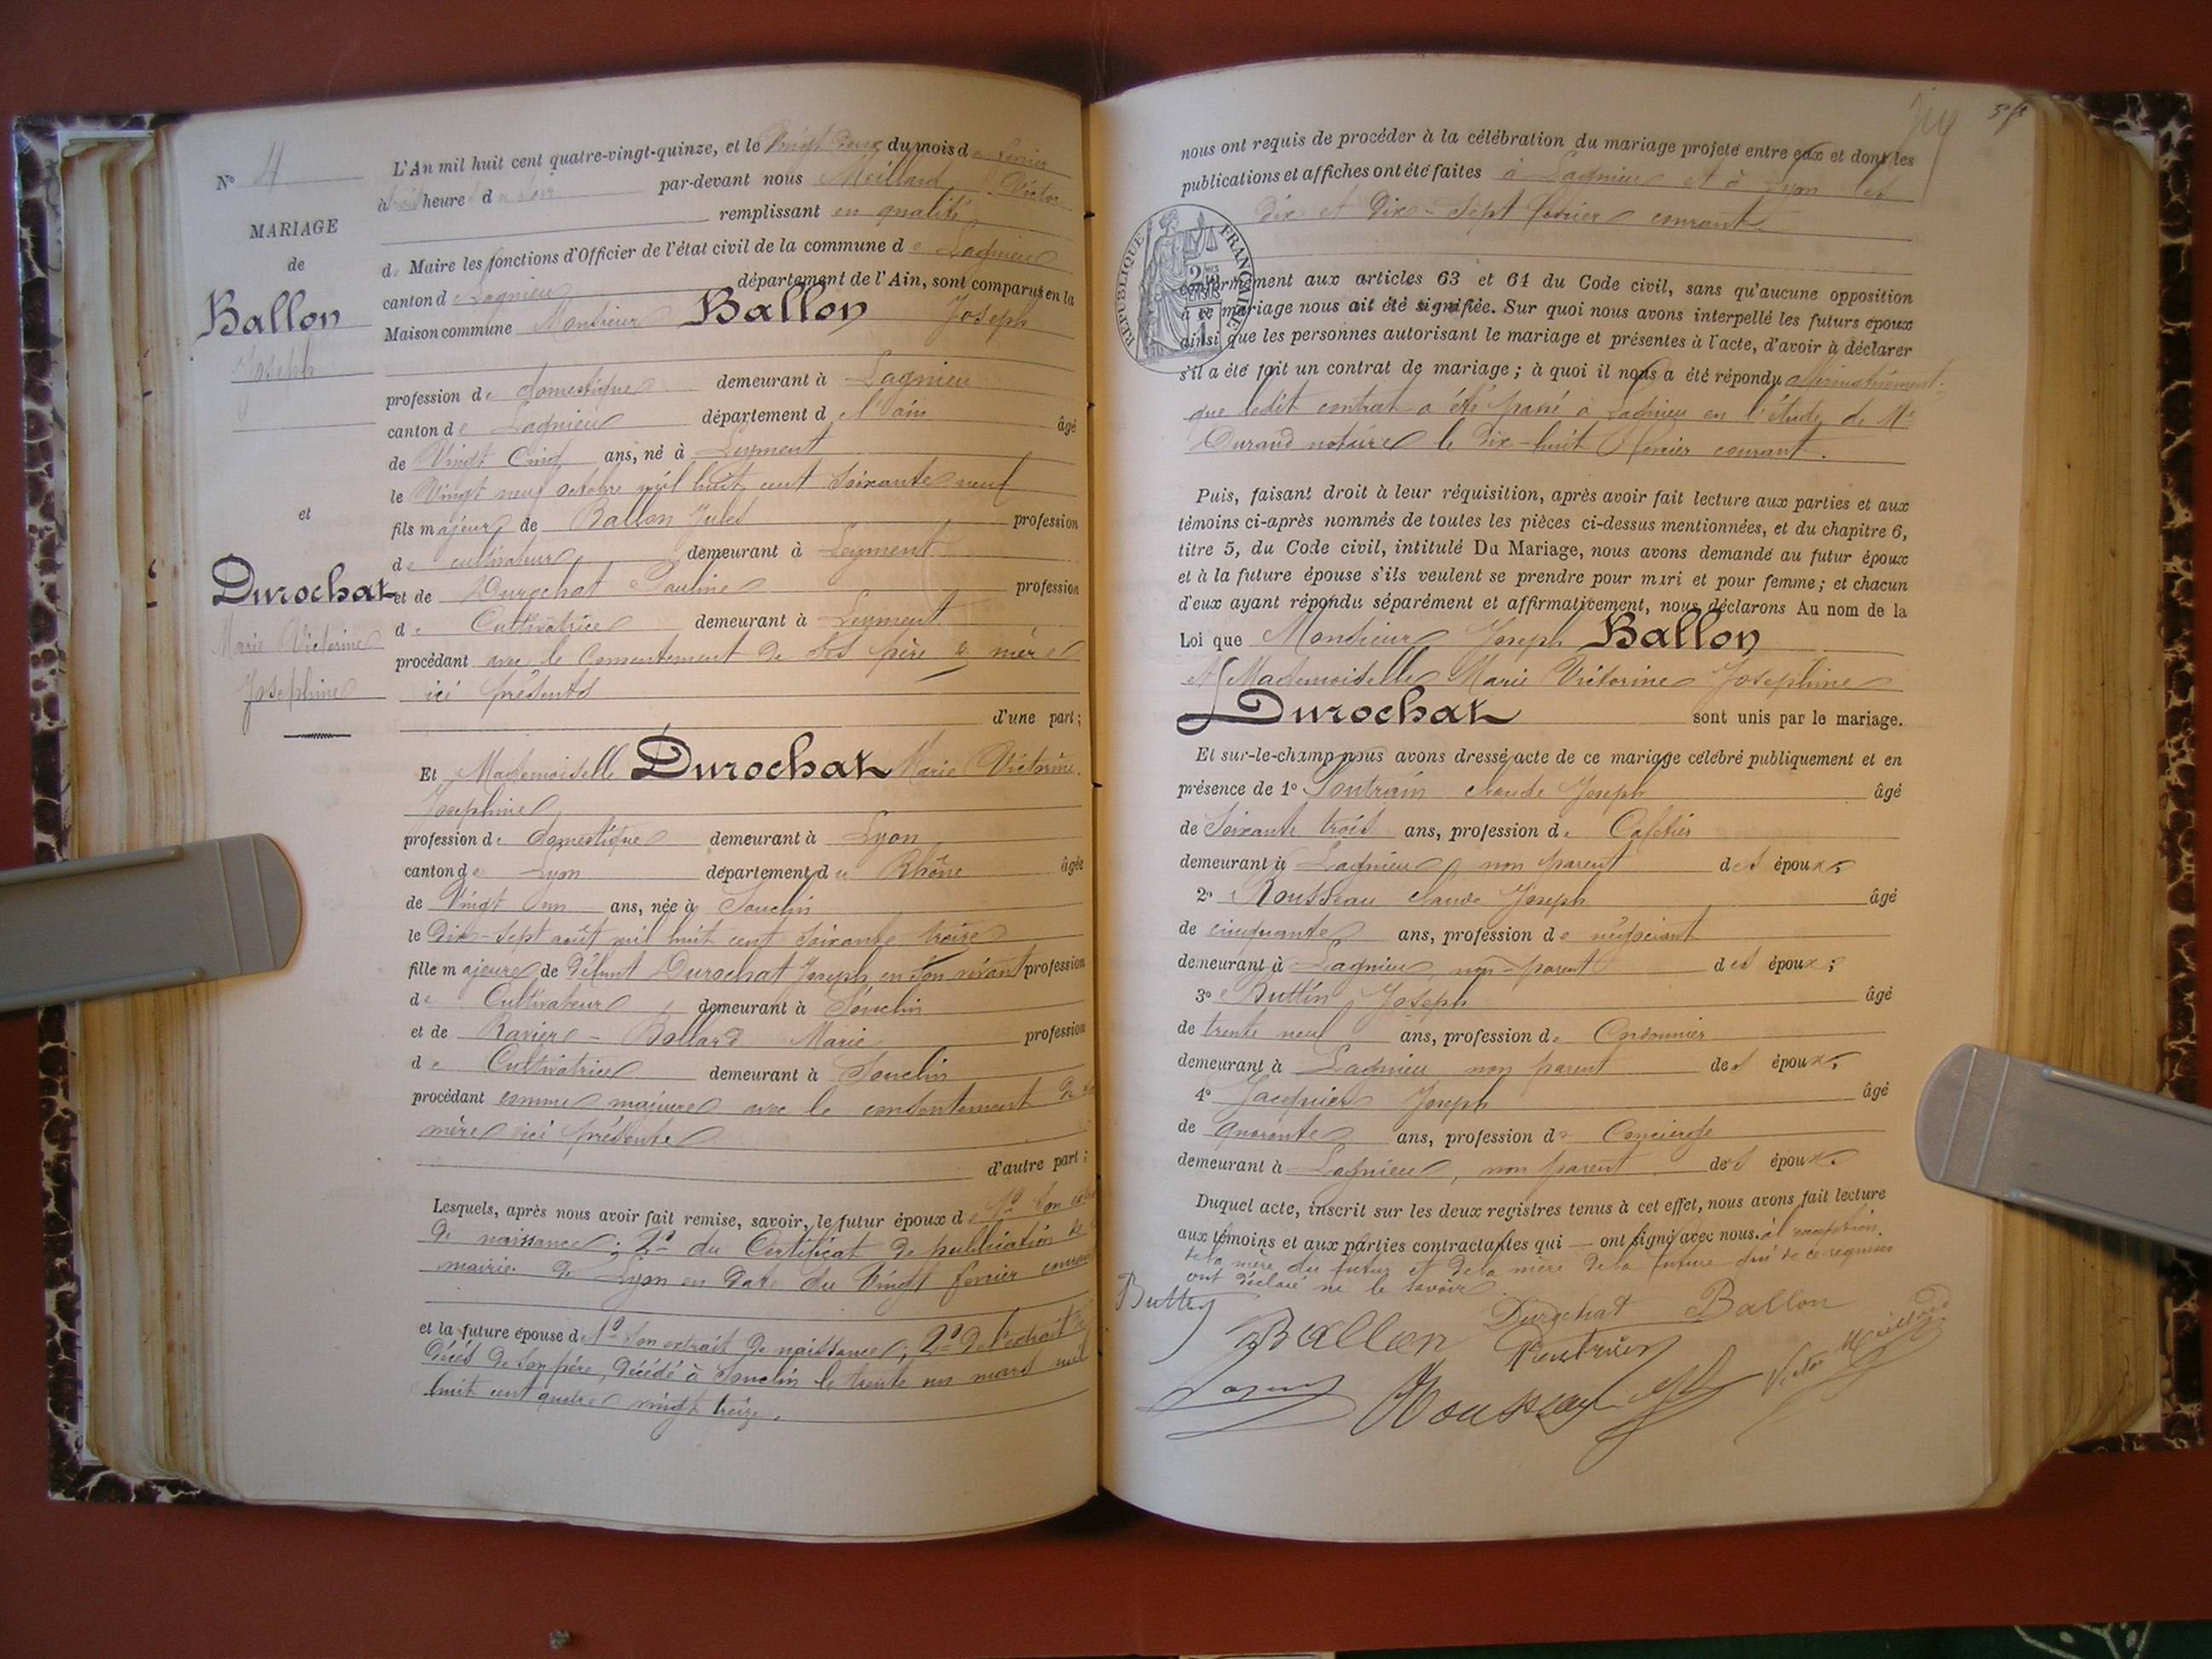 N° 4
MARIAGE
de
Ballon
Joseph
et
Durochat
Marie Victorine
Josephine
L'An mil huit cent quatre-vingt-quinze, et le Vingt deux du mois de fevrier
à trois heures du soir par-devant nous Meillard Victor
remplissant en qualité
de Maire les fonctions d'Officier de l'état civil de la commune de Lagnieu
canton de Lagnieu département de l'Ain, sont comparus en la
Maison commune Monsieur Ballon Joseph
profession de domestique demeurant à Lagnieu
canton de Lagnieu département de l'ain âgé
de Vingt Cinq ans, né à Leyment
le Vingt neuf octobre mil huit cent Soixante neuf
fils majeur de Ballon Jules profession
de cultivateur demeurant à Leyment
et de Durochat Pauline profession
de Cultivatrice demeurant à Leyment
procédant avec le Consentement de Ses père & mère
ici présents
d'une part;
Et Mademoiselle Durochat Marie Victorine
Josephine
profession de domestique demeurant à Lyon
canton de Lyon département du Rhône âgée
de Vingt un ans, née à Souclin
le Dix-sept août mil huit cent soixante treize
fille majeure de défunt Durochat Joseph en son vivant profession
de Cultivateur demeurant à Souclin
et de Ravier-Bollard Marie profession
de Cultivatrice demeurant à Souclin
procédant comme majeure avec le consentement de sa
mère ici présente
d'autre part;
Lesquels, après nous avoir fait remise, savoir, le futur époux de 1° Son
de naissance; 2° du Certificat de publication de
mairie de Lyon en date du Vingt fevrier
et la future épouse de 1° Son extrait de naissance; 2° de l'extrait de
décès de Son père, décédé à Souclin le trente un mars mil
huit cent quatre vingt treize.
nous ont requis de procéder à la célébration du mariage projeté entre eux et dont les
publications et affiches ont été faites à Lagnieu et à Lyon les
dix et Dix-Sept fevrier courant
RÉPUBLIQUE FRANÇAISE
conformément aux articles 63 et 64 du Code civil, sans qu'aucune opposition
à ce mariage nous ait été signifiée. Sur quoi nous avons interpellé les futurs époux
ainsi que les personnes autorisant le mariage et présentes à l'acte, d'avoir à déclarer
s'il a été fait un contrat de mariage; à quoi il nous a été répondu affirmativement
que ledit contrat a été passé à Lagnieu en l'étude de Me
Durand notaire le Dix-huit fevrier courant.
Puis, faisant droit à leur réquisition, après avoir fait lecture aux parties et aux
témoins ci-après nommés de toutes les pièces ci-dessus mentionnées, et du chapitre 6,
titre 5, du Code civil, intitulé Du Mariage, nous avons demandé au futur époux
et à la future épouse s'ils veulent se prendre pour mari et pour femme; et chacun
d'eux ayant répondu séparément et affirmativement, nous déclarons Au nom de la
Loi que Monsieur Joseph Ballon
et Mademoiselle Marie Victorine Josephine
Durochat sont unis par le mariage.
Et sur-le-champ nous avons dressé acte de ce mariage célébré publiquement et en
présence de 1° Poutrain Claude Joseph âgé
de Soixante trois ans, profession de Cafetier
demeurant à Lagnieu, non parent des époux;
2° Rousseau Claude Joseph âgé
de cinquante ans, profession de négociant
demeurant à Lagnieu, non-parent des époux;
3° Buttin Joseph âgé
de trente neuf ans, profession de Cordonnier
demeurant à Lagnieu non parent des époux;
4° Jacquier Joseph âgé
de quarante ans, profession de Concierge
demeurant à Lagnieu, non parent des époux.
Duquel acte, inscrit sur les deux registres tenus à cet effet, nous avons fait lecture
aux témoins et aux parties contractantes qui — ont signé avec nous. à l'exception
de la mère du futur et de la mère de la future qui de ce requises
ont déclaré ne le savoir.
Buttin Durochat Ballon
Ballon Poutrain Victor Meillard
Rousseau